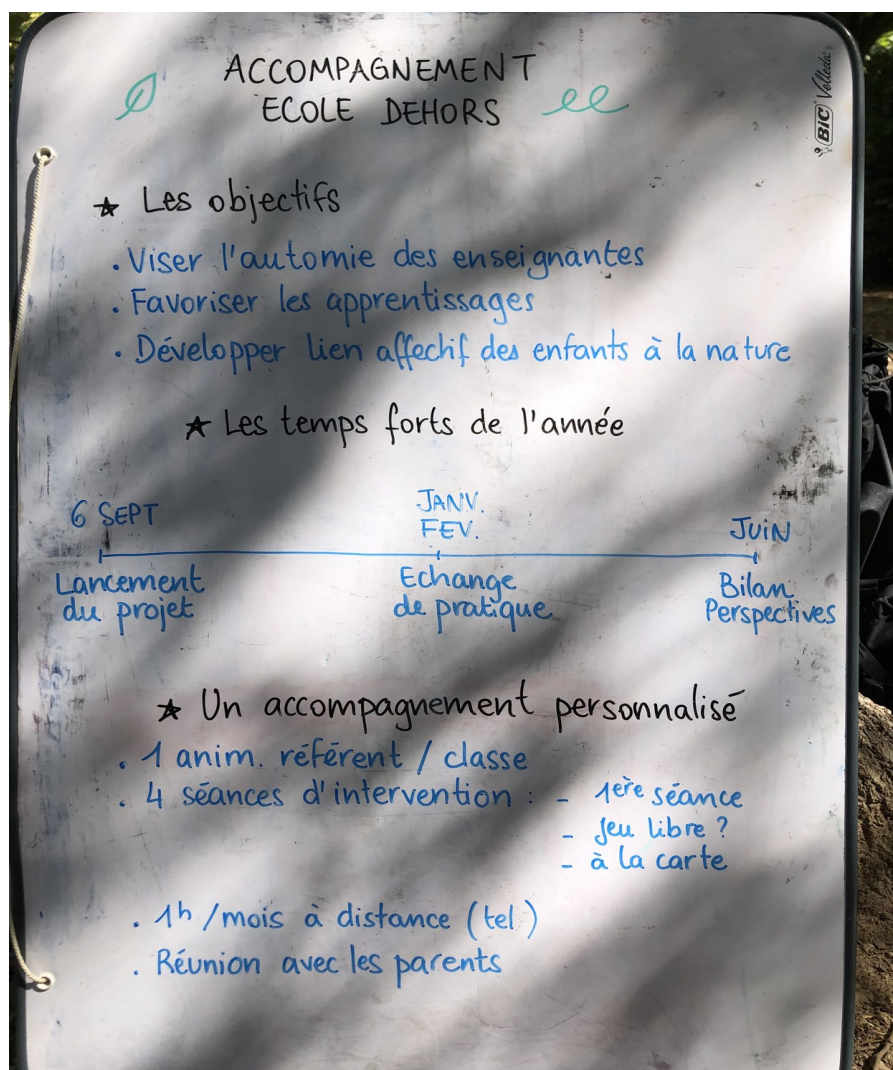 ACCOMPAGNEMENT
ECOLE DEHORS
BIC Velleda
★ Les objectifs
. Viser l'automie des enseignantes
. Favoriser les apprentissages
. Développer lien affectif des enfants à la nature
★ Les temps forts de l'année
6 SEPT
JANV.
FEV.
JUIN
Lancement
du projet
Echange
de pratique
Bilan
Perspectives
★ Un accompagnement personnalisé
. 1 anim. référent / classe
. 4 séances d'intervention : - 1ère séance
- jeu libre ?
- à la carte
. 1h/mois à distance (tel)
. Réunion avec les parents